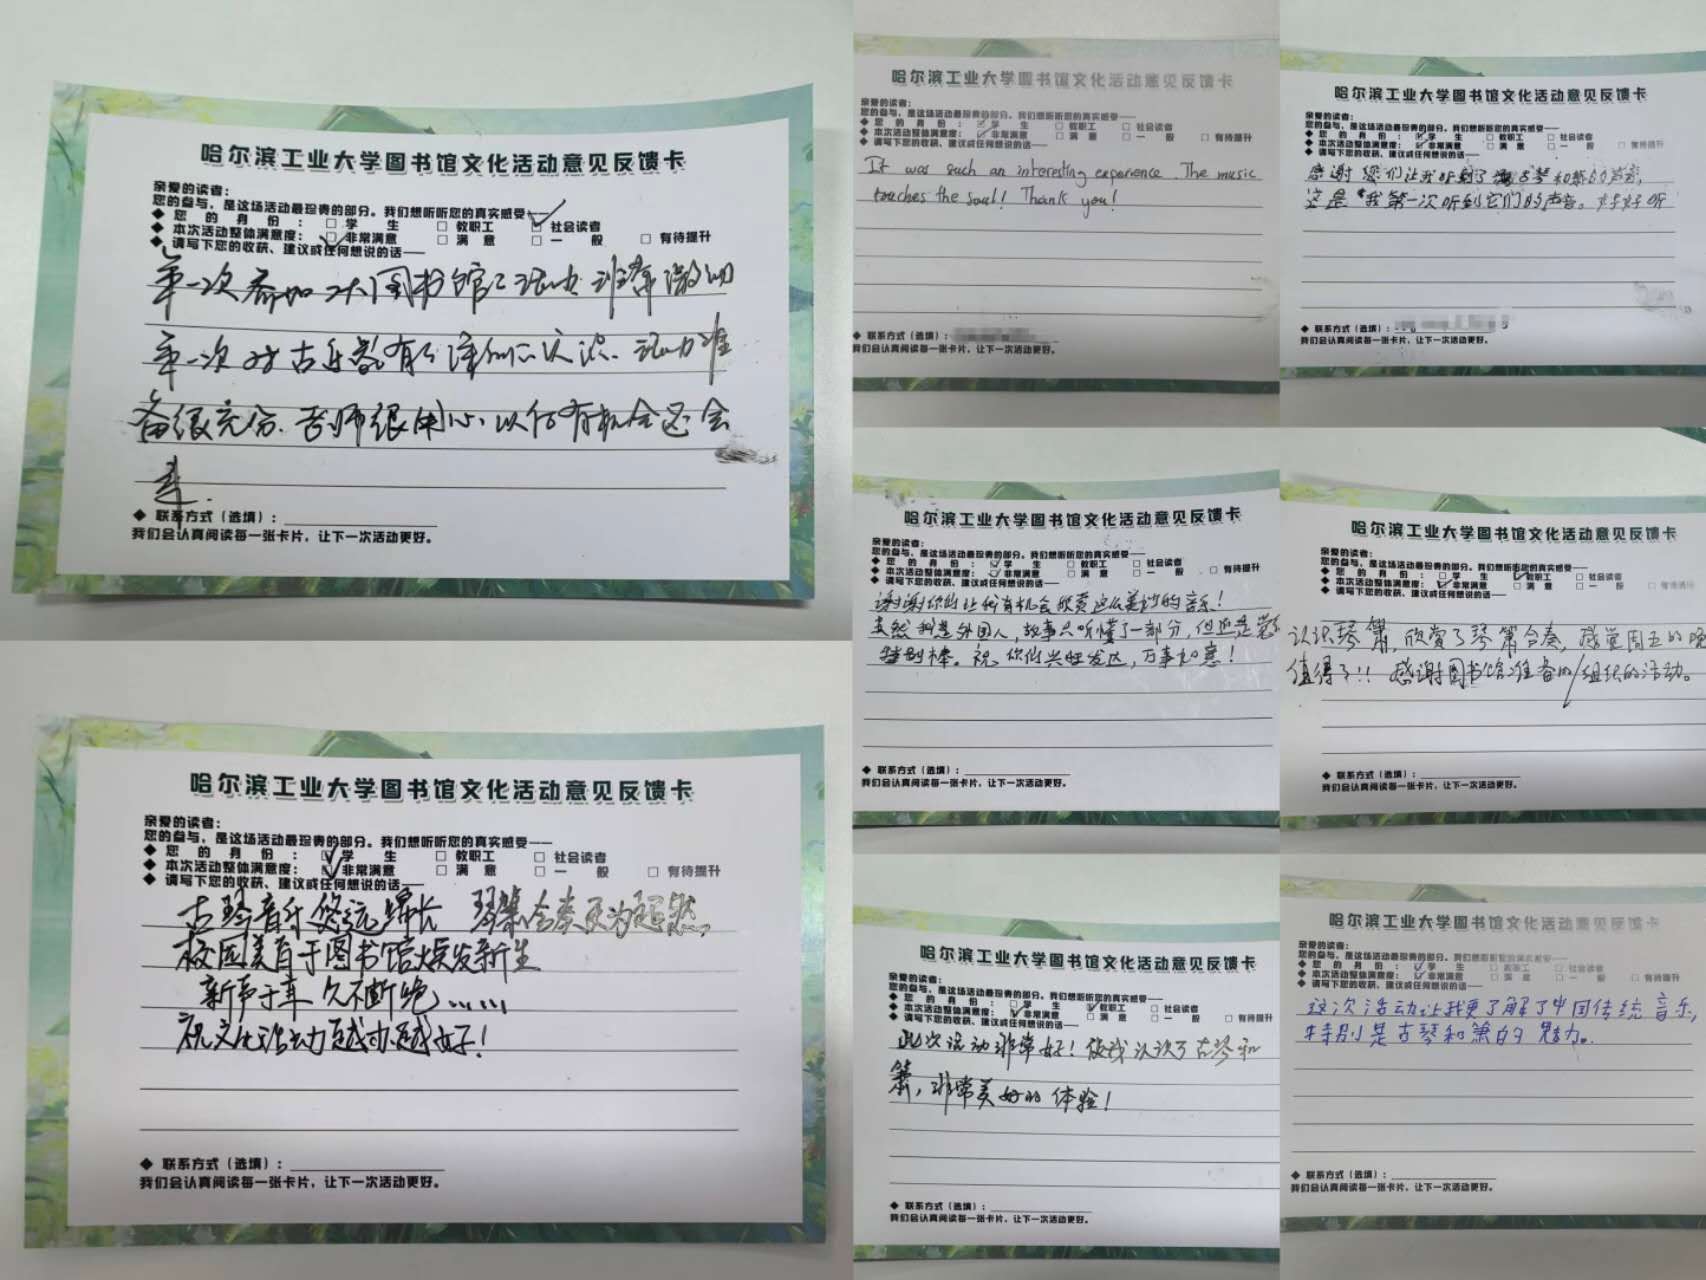 哈尔滨工业大学图书馆文化活动意见反馈卡
亲爱的读者：
您的参与，是这场活动最珍贵的部分。我们想听听您的真实感受——
◆ 您的身份：□学生 □教职工 ☑社会读者
◆ 本次活动整体满意度：☑非常满意 □满意 □一般 □有待提升
◆ 请写下您的收获、建议或任何想说的话——
第一次参加工大图书馆活动 非常激动
第一次对古乐器有了详细的认识. 活动准
备很充分. 老师很用心. 以后有机会还会
来.
◆ 联系方式（选填）：
我们会认真阅读每一张卡片，让下一次活动更好。
哈尔滨工业大学图书馆文化活动意见反馈卡
亲爱的读者：
您的参与，是这场活动最珍贵的部分。我们想听听您的真实感受——
◆ 您的身份：☑学生 □教职工 □社会读者
◆ 本次活动整体满意度：☑非常满意 □满意 □一般 □有待提升
◆ 请写下您的收获、建议或任何想说的话——
古琴音乐悠远绵长 琴箫合奏更为超然，
校园美育于图书馆焕发新生
久不断绝......
祝文化活动越办越好！
◆ 联系方式（选填）：
我们会认真阅读每一张卡片，让下一次活动更好。
哈尔滨工业大学图书馆文化活动意见反馈卡
亲爱的读者：
您的参与，是这场活动最珍贵的部分。我们想听听您的真实感受——
◆ 您的身份：☑学生 □教职工 □社会读者
◆ 本次活动整体满意度：☑非常满意 □满意 □一般 □有待提升
◆ 请写下您的收获、建议或任何想说的话——
It was such an interesting experience. The music
touches the soul! Thank you!
◆ 联系方式（选填）：
我们会认真阅读每一张卡片，让下一次活动更好。
哈尔滨工业大学图书馆文化活动意见反馈卡
亲爱的读者：
您的参与，是这场活动最珍贵的部分。我们想听听您的真实感受——
◆ 您的身份：☑学生 □教职工 □社会读者
◆ 本次活动整体满意度：☑非常满意 □满意 □一般 □有待提升
◆ 请写下您的收获、建议或任何想说的话——
感谢您们让我听到了古琴和箫的声音，
这是我第一次听到它们的声音。好好听
◆ 联系方式（选填）：
我们会认真阅读每一张卡片，让下一次活动更好。
哈尔滨工业大学图书馆文化活动意见反馈卡
亲爱的读者：
您的参与，是这场活动最珍贵的部分。我们想听听您的真实感受——
◆ 您的身份：☑学生 □教职工 □社会读者
◆ 本次活动整体满意度：☑非常满意 □满意 □一般 □有待提升
◆ 请写下您的收获、建议或任何想说的话——
谢谢你们让我有机会欣赏这么美妙的音乐！
虽然我是外国人，故事只听懂了一部分，但还是觉得
特别棒。祝你们兴旺发达，万事如意！
◆ 联系方式（选填）：
我们会认真阅读每一张卡片，让下一次活动更好。
哈尔滨工业大学图书馆文化活动意见反馈卡
亲爱的读者：
您的参与，是这场活动最珍贵的部分。我们想听听您的真实感受——
◆ 您的身份：□学生 ☑教职工 □社会读者
◆ 本次活动整体满意度：☑非常满意 □满意 □一般 □有待提升
◆ 请写下您的收获、建议或任何想说的话——
认识琴箫，欣赏了琴箫合奏，感觉周五的晚
值得了!!! 感谢图书馆准备的/组织的活动。
◆ 联系方式（选填）：
我们会认真阅读每一张卡片，让下一次活动更好。
哈尔滨工业大学图书馆文化活动意见反馈卡
亲爱的读者：
您的参与，是这场活动最珍贵的部分。我们想听听您的真实感受——
◆ 您的身份：□学生 ☑教职工 □社会读者
◆ 本次活动整体满意度：☑非常满意 □满意 □一般 □有待提升
◆ 请写下您的收获、建议或任何想说的话——
此次活动非常好！使我认识了古琴和
箫，非常美好的体验！
◆ 联系方式（选填）：
我们会认真阅读每一张卡片，让下一次活动更好。
哈尔滨工业大学图书馆文化活动意见反馈卡
亲爱的读者：
您的参与，是这场活动最珍贵的部分。我们想听听您的真实感受——
◆ 您的身份：☑学生 □教职工 □社会读者
◆ 本次活动整体满意度：☑非常满意 □满意 □一般 □有待提升
◆ 请写下您的收获、建议或任何想说的话——
这次活动让我更了解了中国传统音乐，
特别是古琴和箫的魅力。
◆ 联系方式（选填）：
我们会认真阅读每一张卡片，让下一次活动更好。